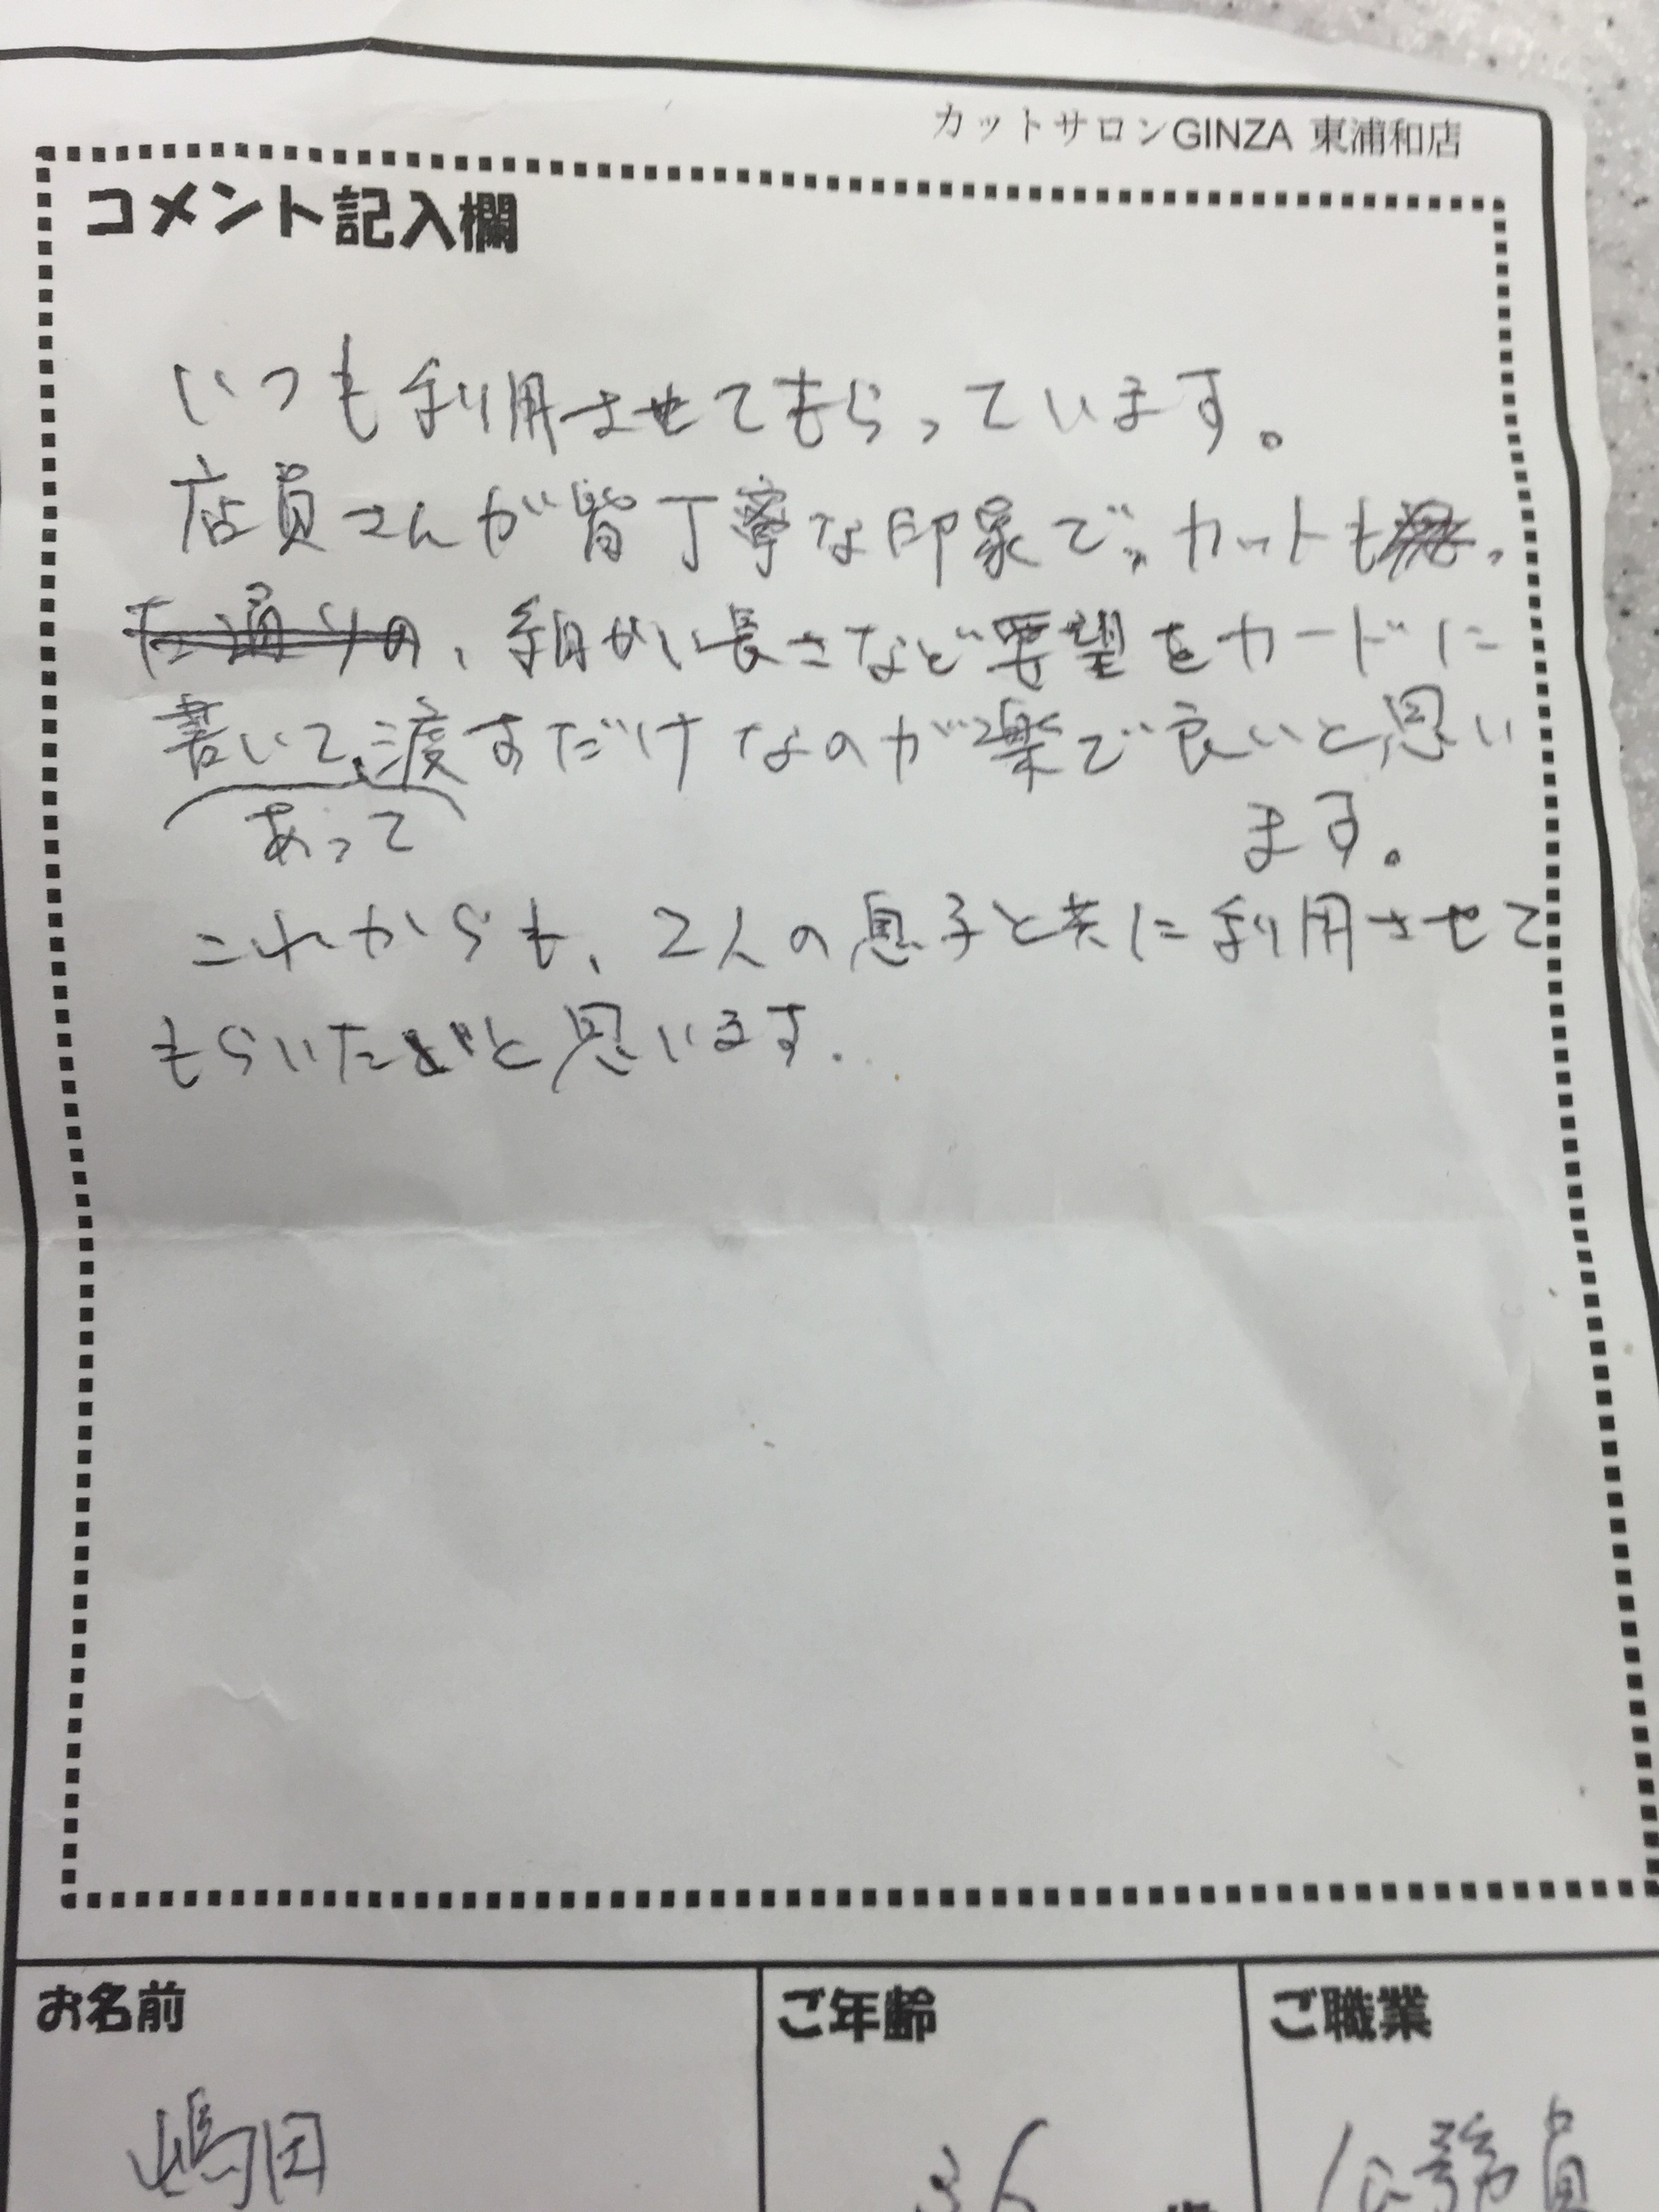 カットサロンGINZA 東浦和店
コメント記入欄
いつも利用させてもらっています。
店員さんが皆丁寧な印象で、カットも
た通りの、細かい長さなど要望をカードに
書いて、渡すだけなのが楽で良いと思い
あって
ます。
これからも、2人の息子と共に利用させて
もらいたいと思います.
お名前
ご年齢
ご職業
嶋田
36
公務員